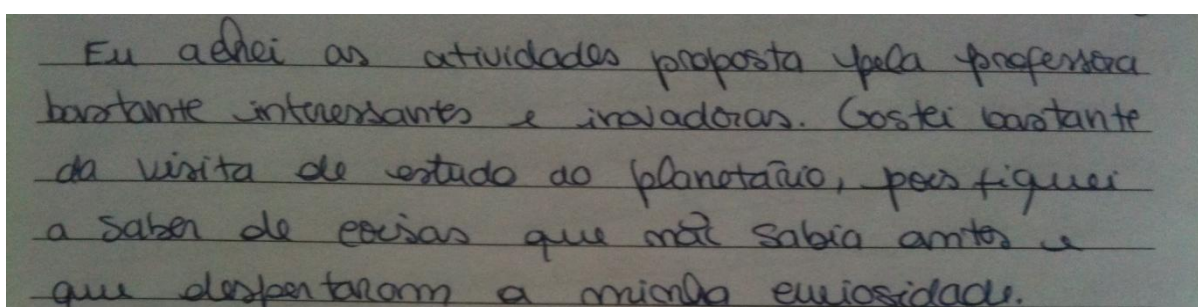 Eu achei as atividades proposta pela professora
bastante interessantes e inovadoras. Gostei bastante
da visita de estudo ao planetário, pois fiquei
a saber de coisas que não sabia antes e
que despertaram a minha curiosidade.